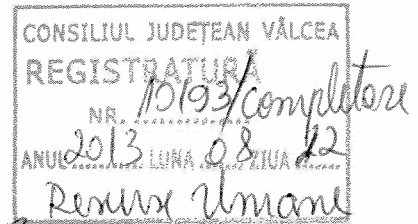 CONSILIUL JUDEŢEAN VÂLCEA
REGISTRATURĂ
NR. 10193/completare
ANUL 2013 LUNA 08 ZIUA 22
Resurse Umane